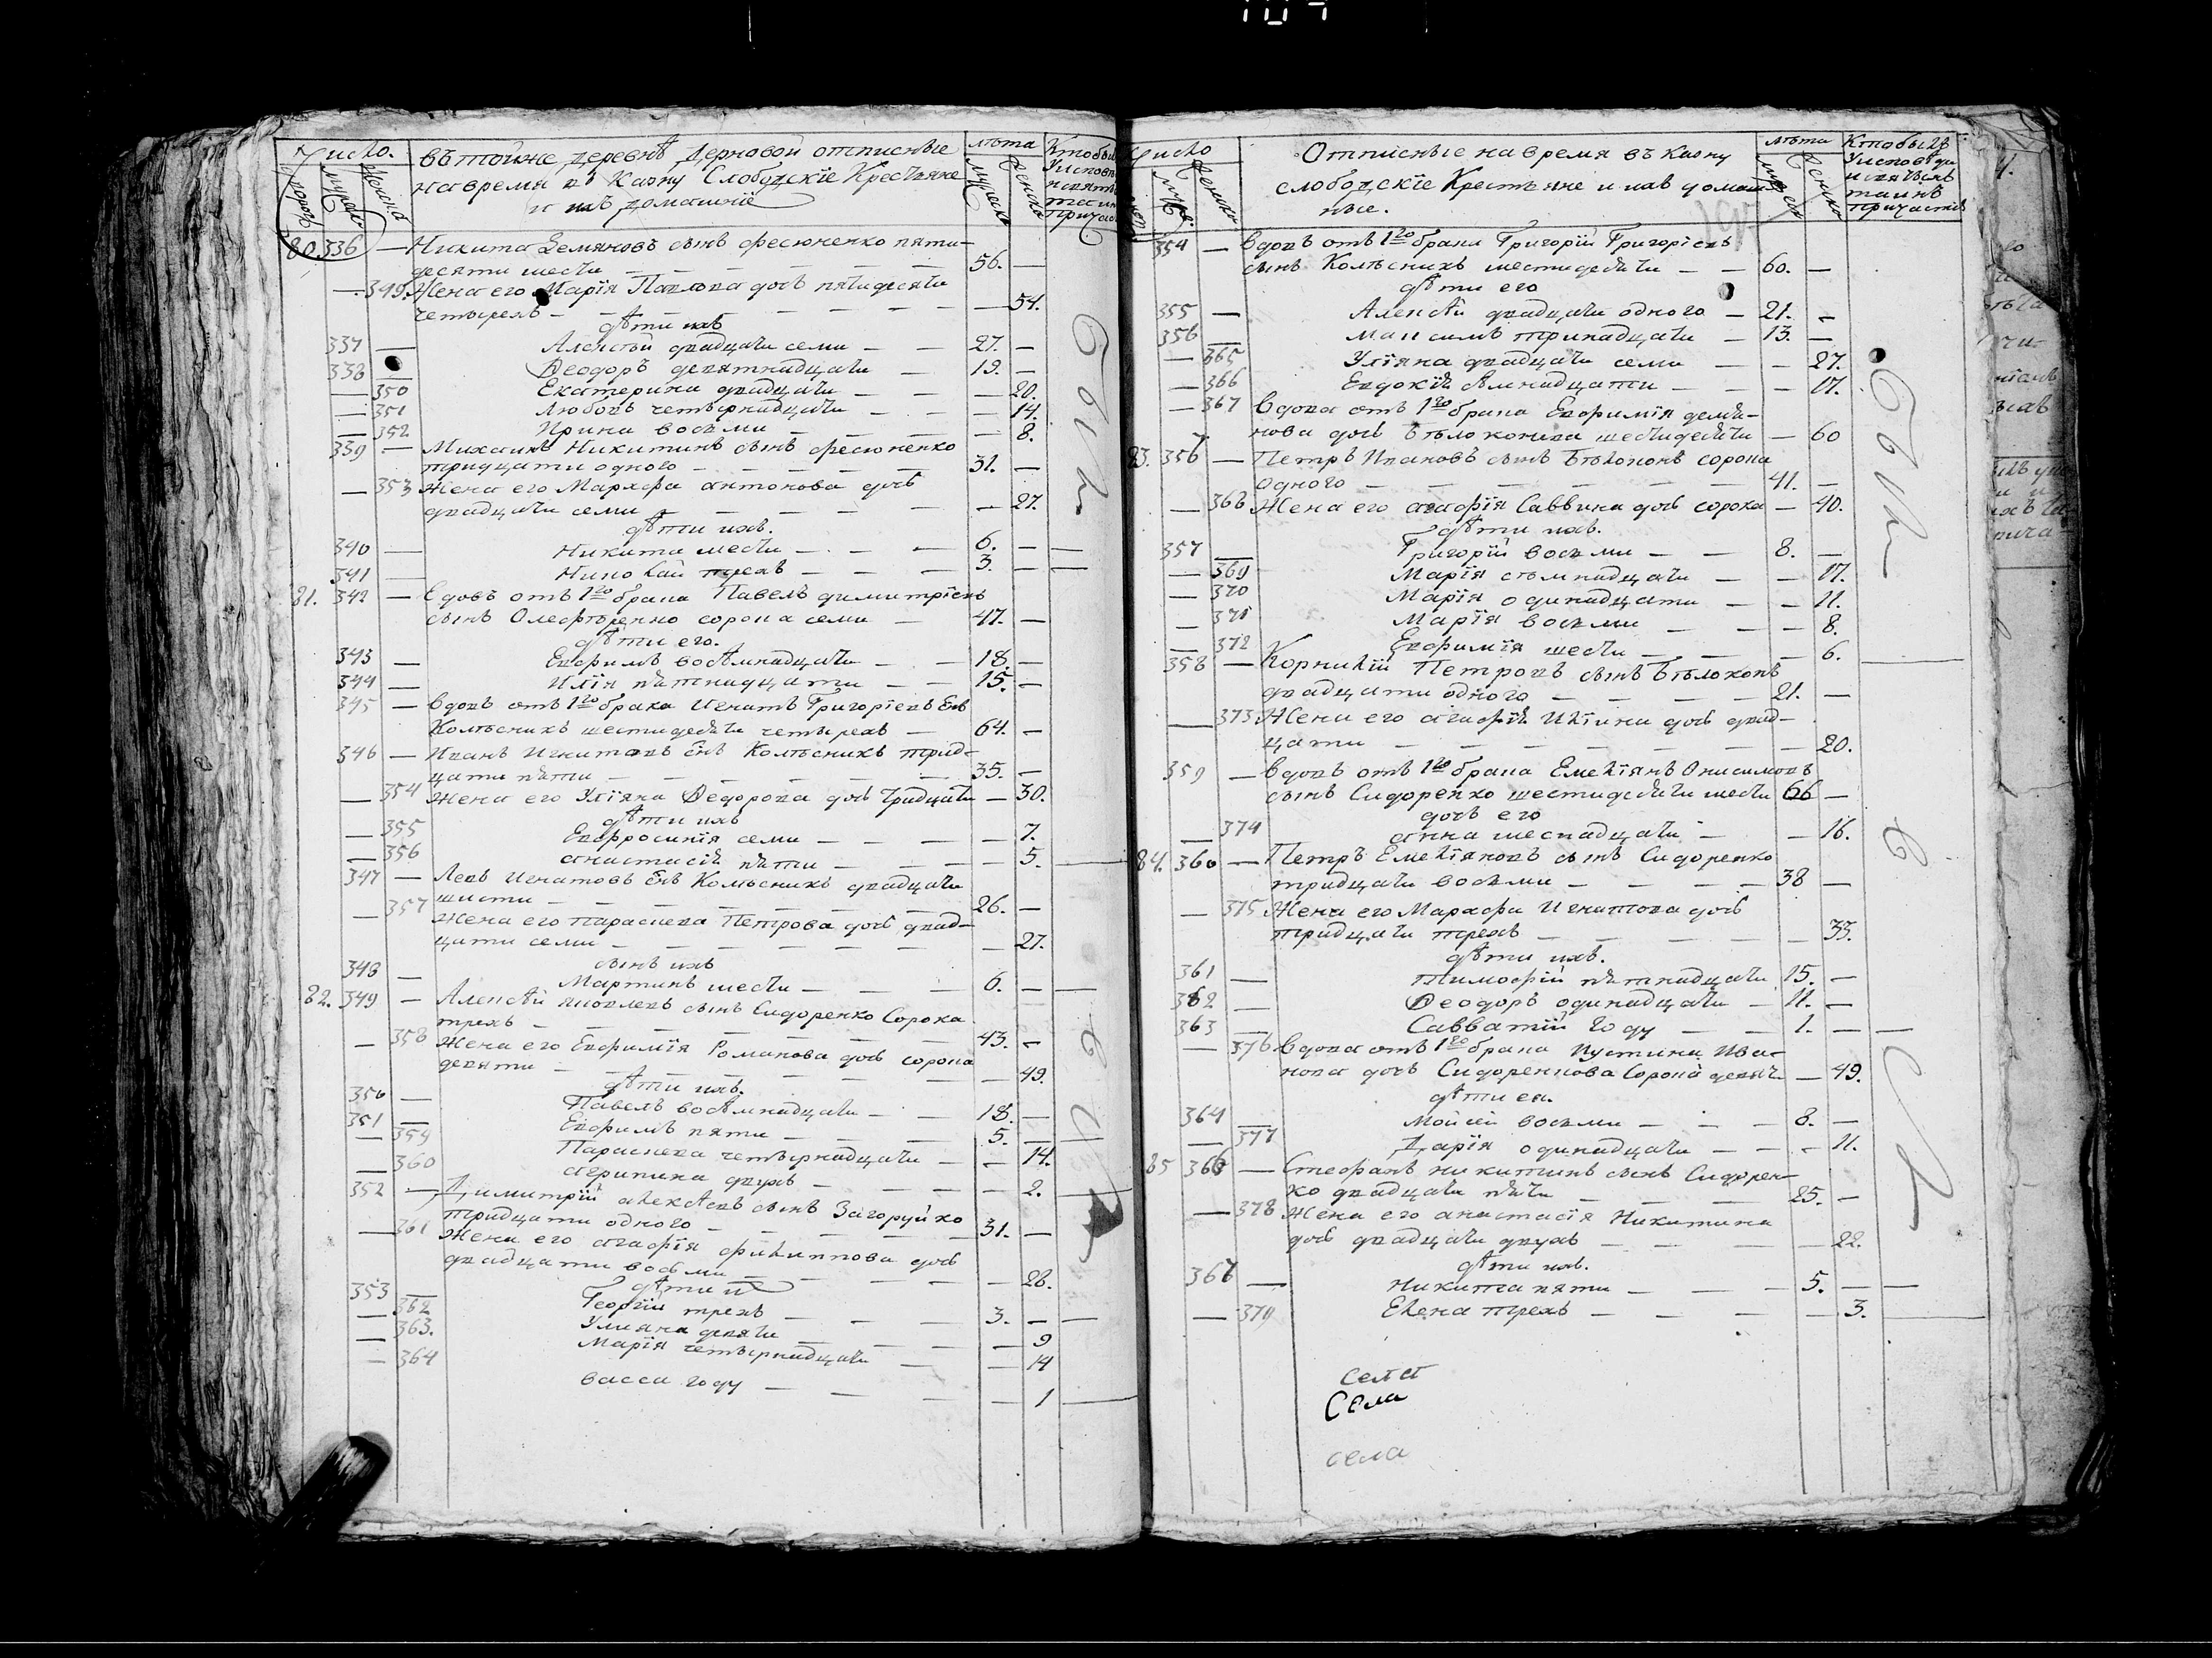 Число. Въ тойже деревнѣ Дерновой отписные лѣта Кто был
на время въ Казну Слободскїе Крестьяне
и ихъ домашнїе
дворовъ мужеска женска мужеска женска
80. 336 — Никита Демяновъ сынъ Фесюненко пяти-
десяти шести — 56. —
— 349. Жена его Марїя Павлова дочь пятидесяти
четырехъ — 54.
дѣти ихъ
337 — Алексѣй двадцати семи — 27. —
338 — Ѳеодоръ девятнадцати — 19. —
— 350 Екатерина двадцати — 20.
— 351 Любовь четырнадцати — 14.
— 352 Ирина восьми — 8.
339 — Михаилъ Никитинъ сынъ Фесюненко
тридцати одного — 31. —
— 353 Жена его Марѳа Антонова дочь
двадцати семи — 27.
дѣти ихъ.
340 — Никита шести — 6. —
341 — Николай трехъ — 3. —
81. 342 — Вдовъ отъ 1го брака Павелъ Димитрїевъ
сынъ Олефѣренко сорока семи — 47. —
дѣти его.
343 — Евфимъ восѣмнадцати — 18. —
344 — Илїя пятнадцати — 15. —
345 — Вдовъ отъ 1го брака Игнатъ Григорїевъ снъ
Колѣсникъ шестидесяти четырехъ — 64. —
346 — Иванъ Игнатовъ снъ Колѣсникъ трид-
цати пяти — 35. —
— 354 Жена его Улїяна Ѳедорова дочь тридцати — 30.
дѣти ихъ
— 355 Евфросинїя семи — 7.
— 356 Анастасїя пяти — 5.
347 — Левъ Игнатовъ снъ Колѣсникъ двадцати
шисти — 26. —
— 357 Жена его Параскева Петрова дочь двад-
цати семи — 27.
сынъ ихъ
348 — Мартинъ шести — 6. —
82. 349 — Алексѣй Яковлевъ сынъ Сидоренко Сорока
трехъ — 43. —
— 358 Жена его Евфимїя Романова дочь сорока
девяти — 49.
дѣти ихъ.
350 — Павелъ восѣмнадцати — 18. —
351 — Евфимъ пяти — 5. —
— 359 Параскева четырнадцати — 14.
— 360 Агрипина двухъ — 2.
352 — Димитрїй Алексѣевъ сынъ Загоруйко
тридцати одного — 31. —
— 361 Жена его Агафїя Филиппова дочь
двадцати восьми — 28.
дѣти ихъ
353 — Георгїй трехъ — 3. —
— 362 Улияна девяти — 9
— 363. Марїя четырнадцати — 14
— 364 Васса году — 1
Число Отписные на время въ Казну лѣта Кто былъ
слободскїе Крестьяне и ихъ домаш-
ные.
354 — Вдовъ отъ 1го брака Григорїй Григорїевъ
сынъ Колѣсникъ шестидесяти — 60. —
дѣти его
355 — Алексѣй двадцати одного — 21. —
356 — Максимъ тринадцати — 13. —
— 365 Улїяна двадцати семи — 27.
— 366 Евдокїя сѣмнадцати — 17.
— 367 Вдова отъ 1го брака Евфимїя Демя-
нова дочь Бѣлоконева шестидесяти — 60
83. 356 — Петръ Ивановъ сынъ Бѣлоконь сорока
одного — 41. —
— 368 Жена его Агафїя Саввина дочь сорока — 40.
дѣти ихъ.
357 — Григорїй восьми — 8. —
— 369 Марїя сѣмнадцати — 17.
— 370 Марїя одинадцати — 11.
— 371 Марїя восьми — 8.
— 372 Евфимїя шести — 6.
358 — Корнилїй Петровъ сынъ Бѣлоконь
двадцати одного — 21. —
— 373 Жена его Агафїя Илїина дочь двад-
цати — 20.
359 — Вдовъ отъ 1го брака Емелїянъ Онисимовъ
сынъ Сидоренко шестидесяти шести 66 —
дочь его
— 374 Анна шеснадцати — 16.
84. 360 — Петръ Емелїяновъ сынъ Сидоренко
тридцати восьми — 38 —
— 375 Жена его Марѳа Игнатова дочь
тридцати трехъ — 33.
дѣти ихъ.
361 — Тимофїй пятнадцати 15. —
362 — Ѳеодоръ одинадцати — 11. —
363 — Савватїй году — 1. —
— 376 Вдова отъ 1го брака Иустина Ива-
нова дочь Сидоренкова Сорока девяти — 49.
дѣти ея.
364 — Мойсей восьми — 8. —
— 377 Дарїя одинадцати — 11.
85 366 — Стефанъ Никитинъ сынъ Сидорен-
ко двадцати пяти — 25. —
— 378 Жена его Анастасїя Никитина
дочь двадцати двухъ — 22.
дѣти ихъ.
367 — Никита пяти — 5. —
— 379 Елена трехъ — 3.
села
Села
села